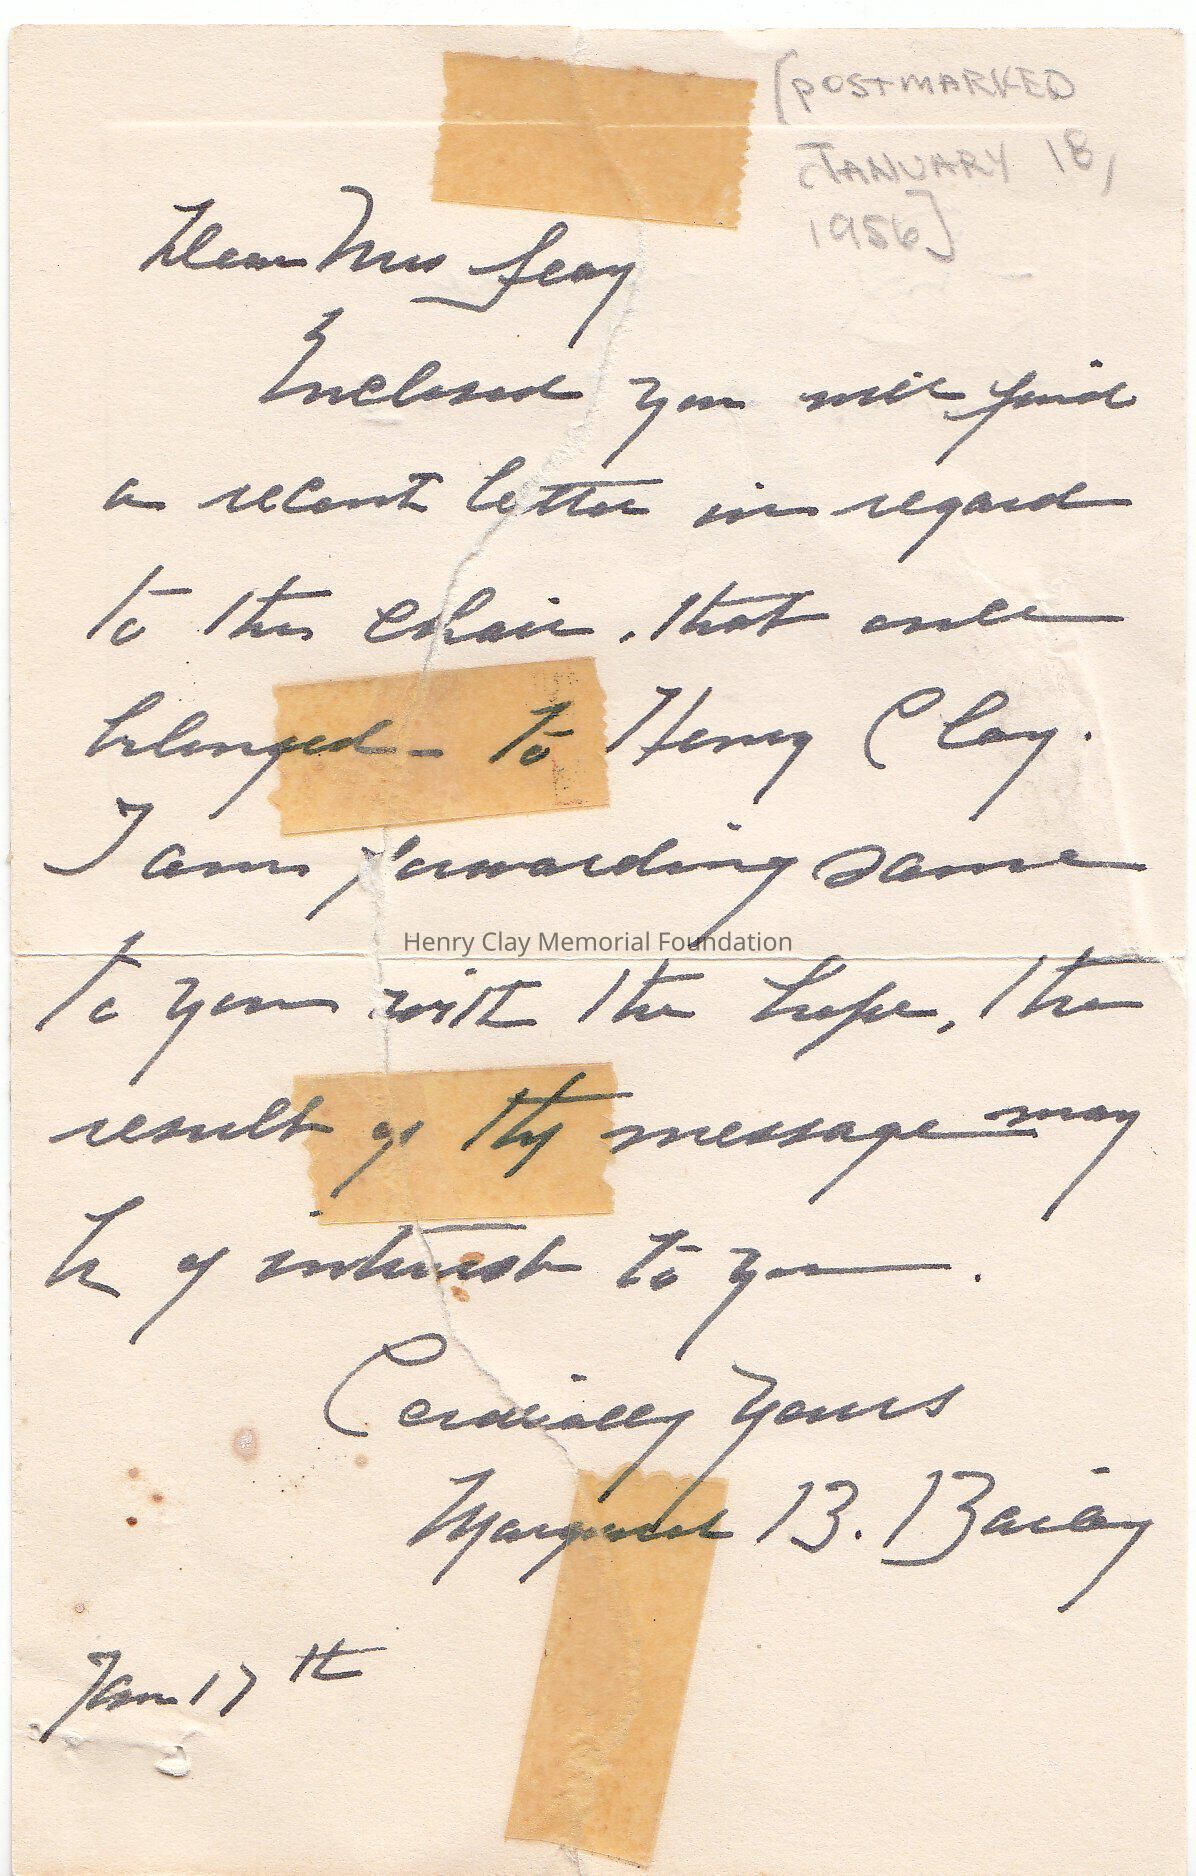 [POSTMARKED
JANUARY 18,
1956]
Dear Mrs
Enclosed you will find
a recent letter in regard
to the chair, that once
belonged - to Henry Clay.
I am forwarding same
to you with the hope, the
result of the message may
be of interest to you.
Cordially Yours
Margaret B. Bailey
Jan 17th
Henry Clay Memorial Foundation